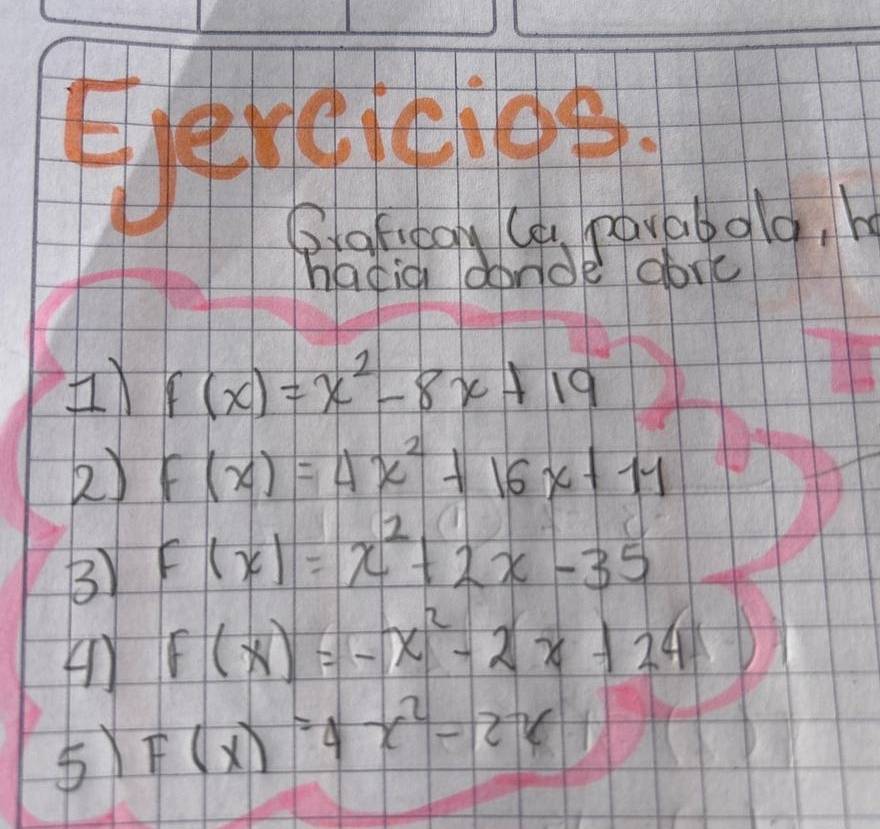 Ejercicios.
Graficar la parabola,
hacia donde abre
1) f(x) = x² - 8x + 19
2) F(x) = 4x² + 16x + 11
3) F(x) = x² + 2x - 35
4) F(x) = -x² - 2x + 24
5) F(x) = 4x² - 2x